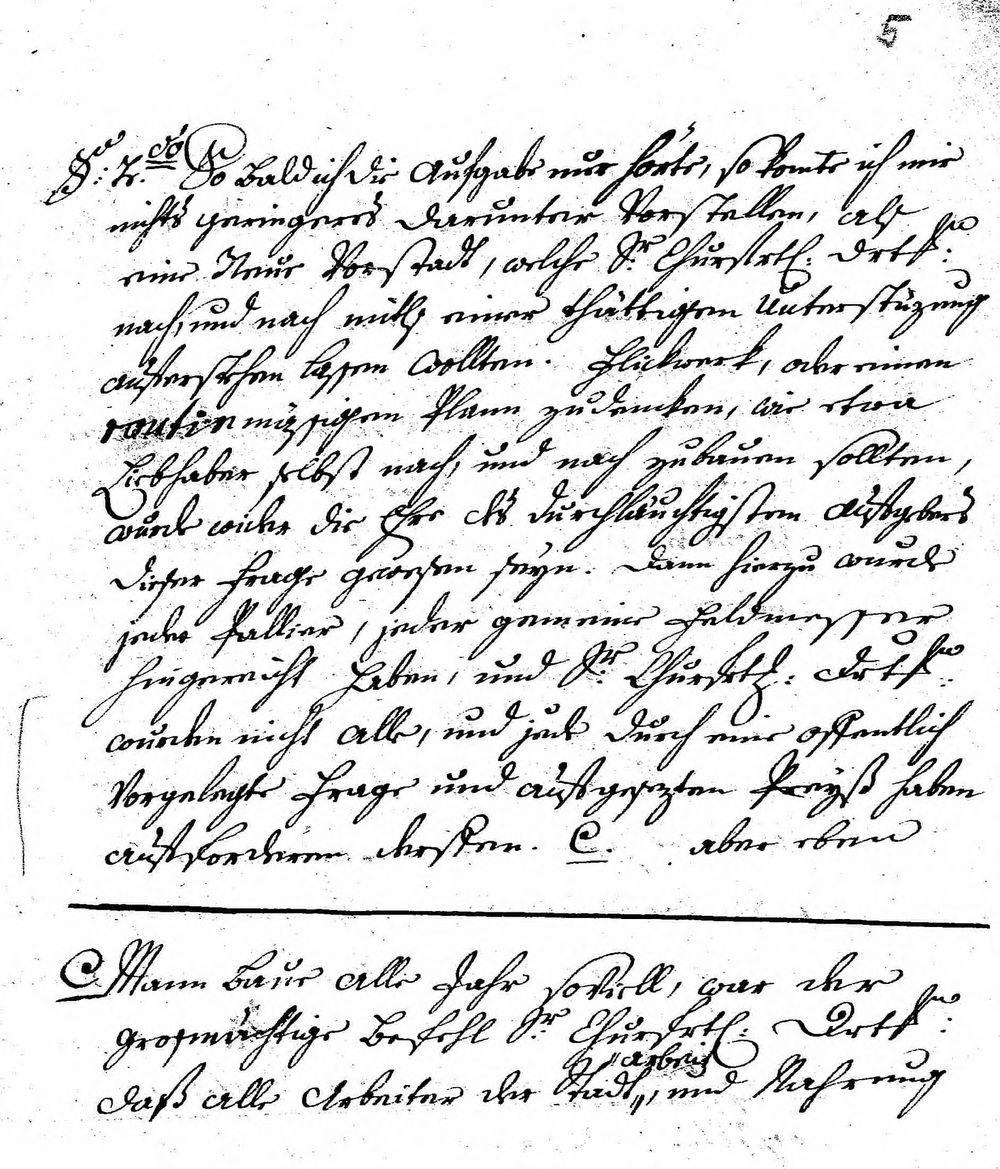 5
§: 2.do So bald ich die Aufgabe nur hörte, so konte ich mir
nichts geringeres darunter Vorstellen, als
eine Neue Vorstadt, welche Sr Churfrtl: Drtl:
nach, und nach mitls einer thättigen Unterstüzung
auferstehen lassen wollten. Flickwerk, oder einen
routinmäsigen Plann zudencken, wie etwa
Liebhaber selbst nach, und nach zubauen sollten,
wurde wider die Ehre des durchläuchtigsten Aufgebers
dieser Frage gewesen seyn. Dann hierzu wurde
jeder Pallier, jeder gemeine Feldmesser
hingereicht haben, und Sr Churfrtl: Drtl:
wurden nicht alle, und jede durch eine offentlich
Vorgelegte Frage und ausgesezten Preyß haben
aufforderen derffen. C. aber eben
C. Mann baue alle Jahr soviell, war der
grosmächtige Befehl Sr Churfrtl: Drtl:
arbeit
daß alle Arbeiter der Stadt, und Nahrung